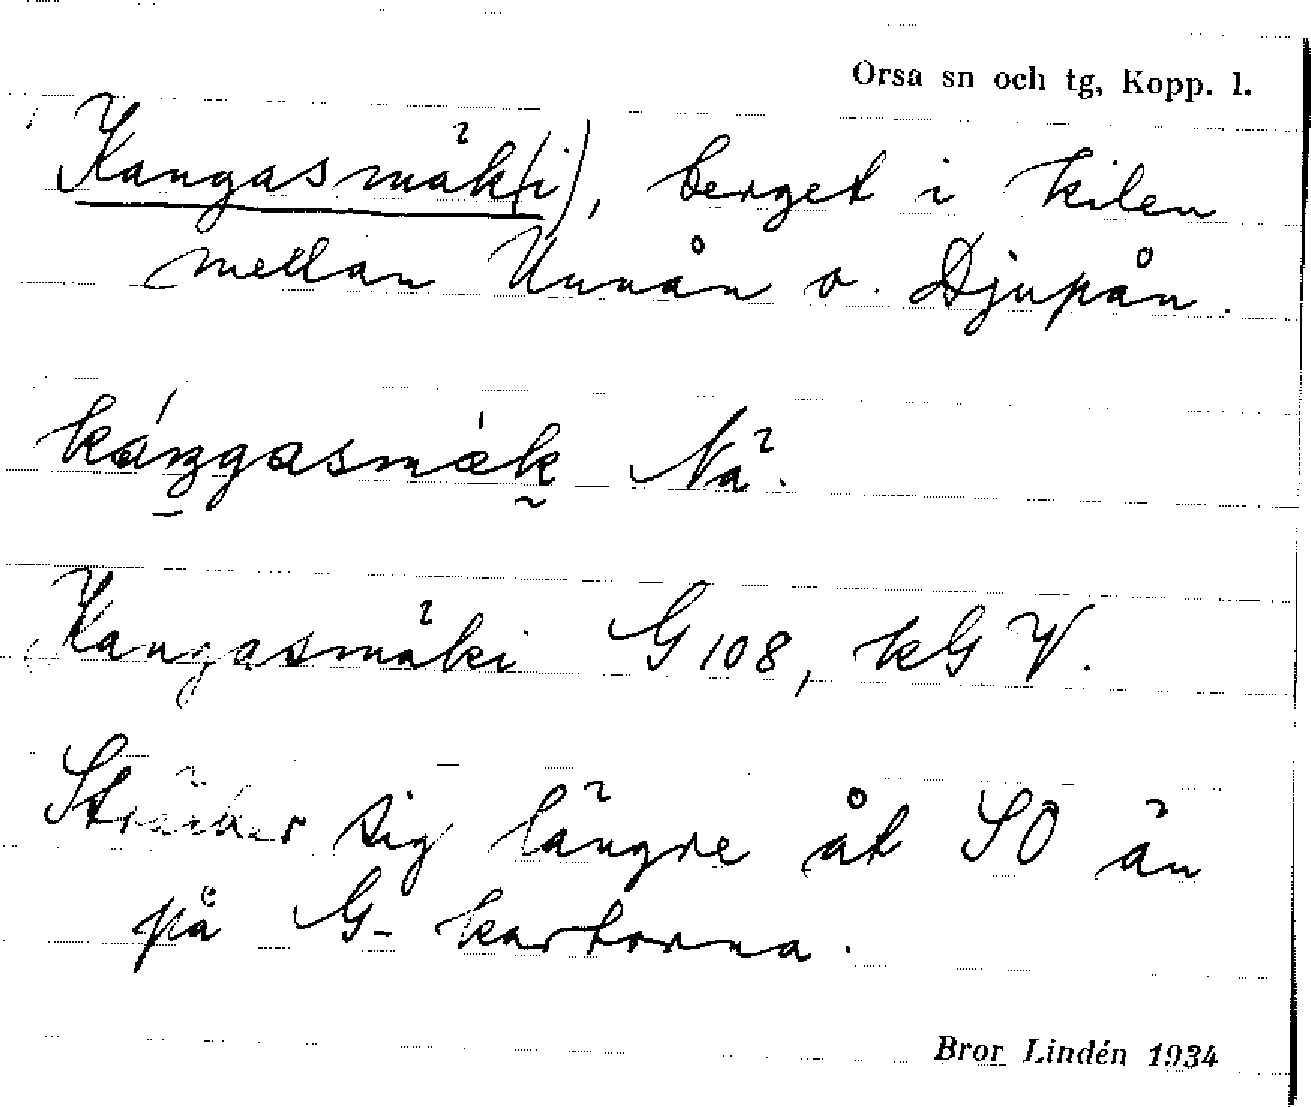 Orsa sn och tg, Kopp. l.
Kangasmäk(i), berget i kilen
mellan Unnån o. Djupån.
Nä.
Kangasmäki G 108, kG V.
Sträcker sig längre åt SO än
på G-kartorna.
Bror Lindén 1934